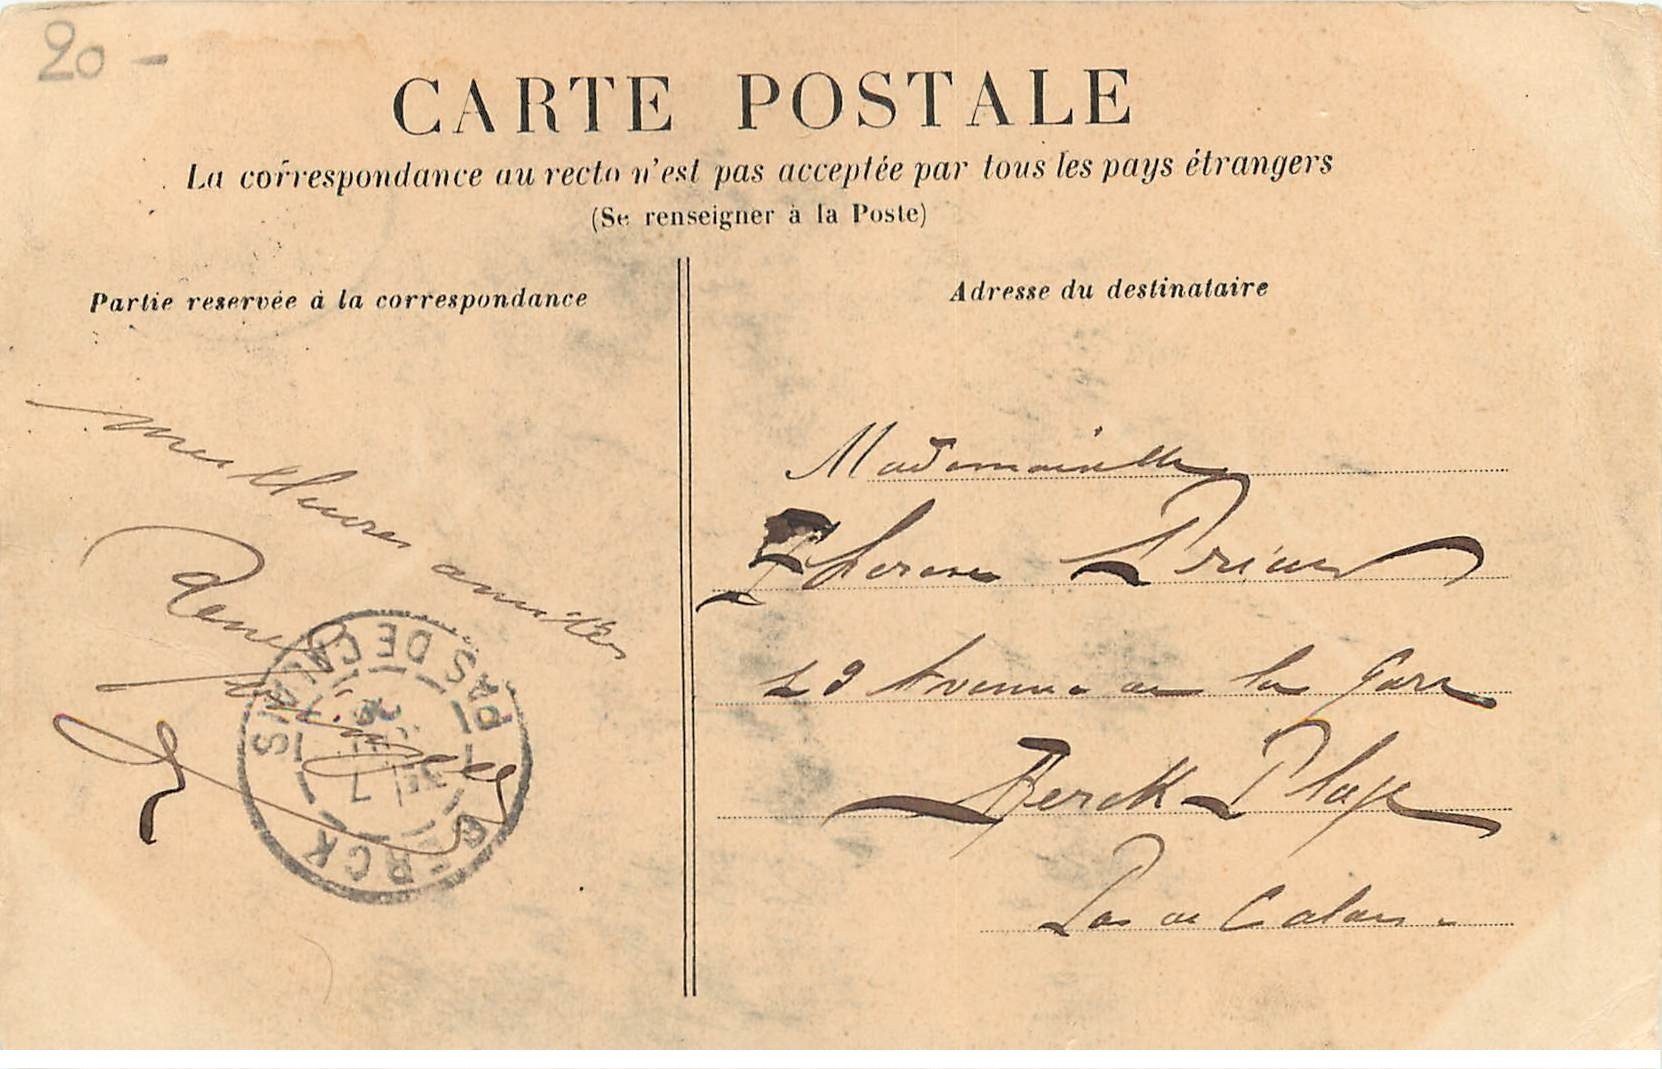 20 -
CARTE POSTALE
La correspondance au recto n'est pas acceptée par tous les pays étrangers
(Se renseigner à la Poste)
Partie reservée à la correspondance
Adresse du destinataire
Meilleures amitiés
Mademoiselle
Prieur
Avenue de la Gare
Berck Plage
Pas de Calais.
BERCK
PAS DE CALAIS
7